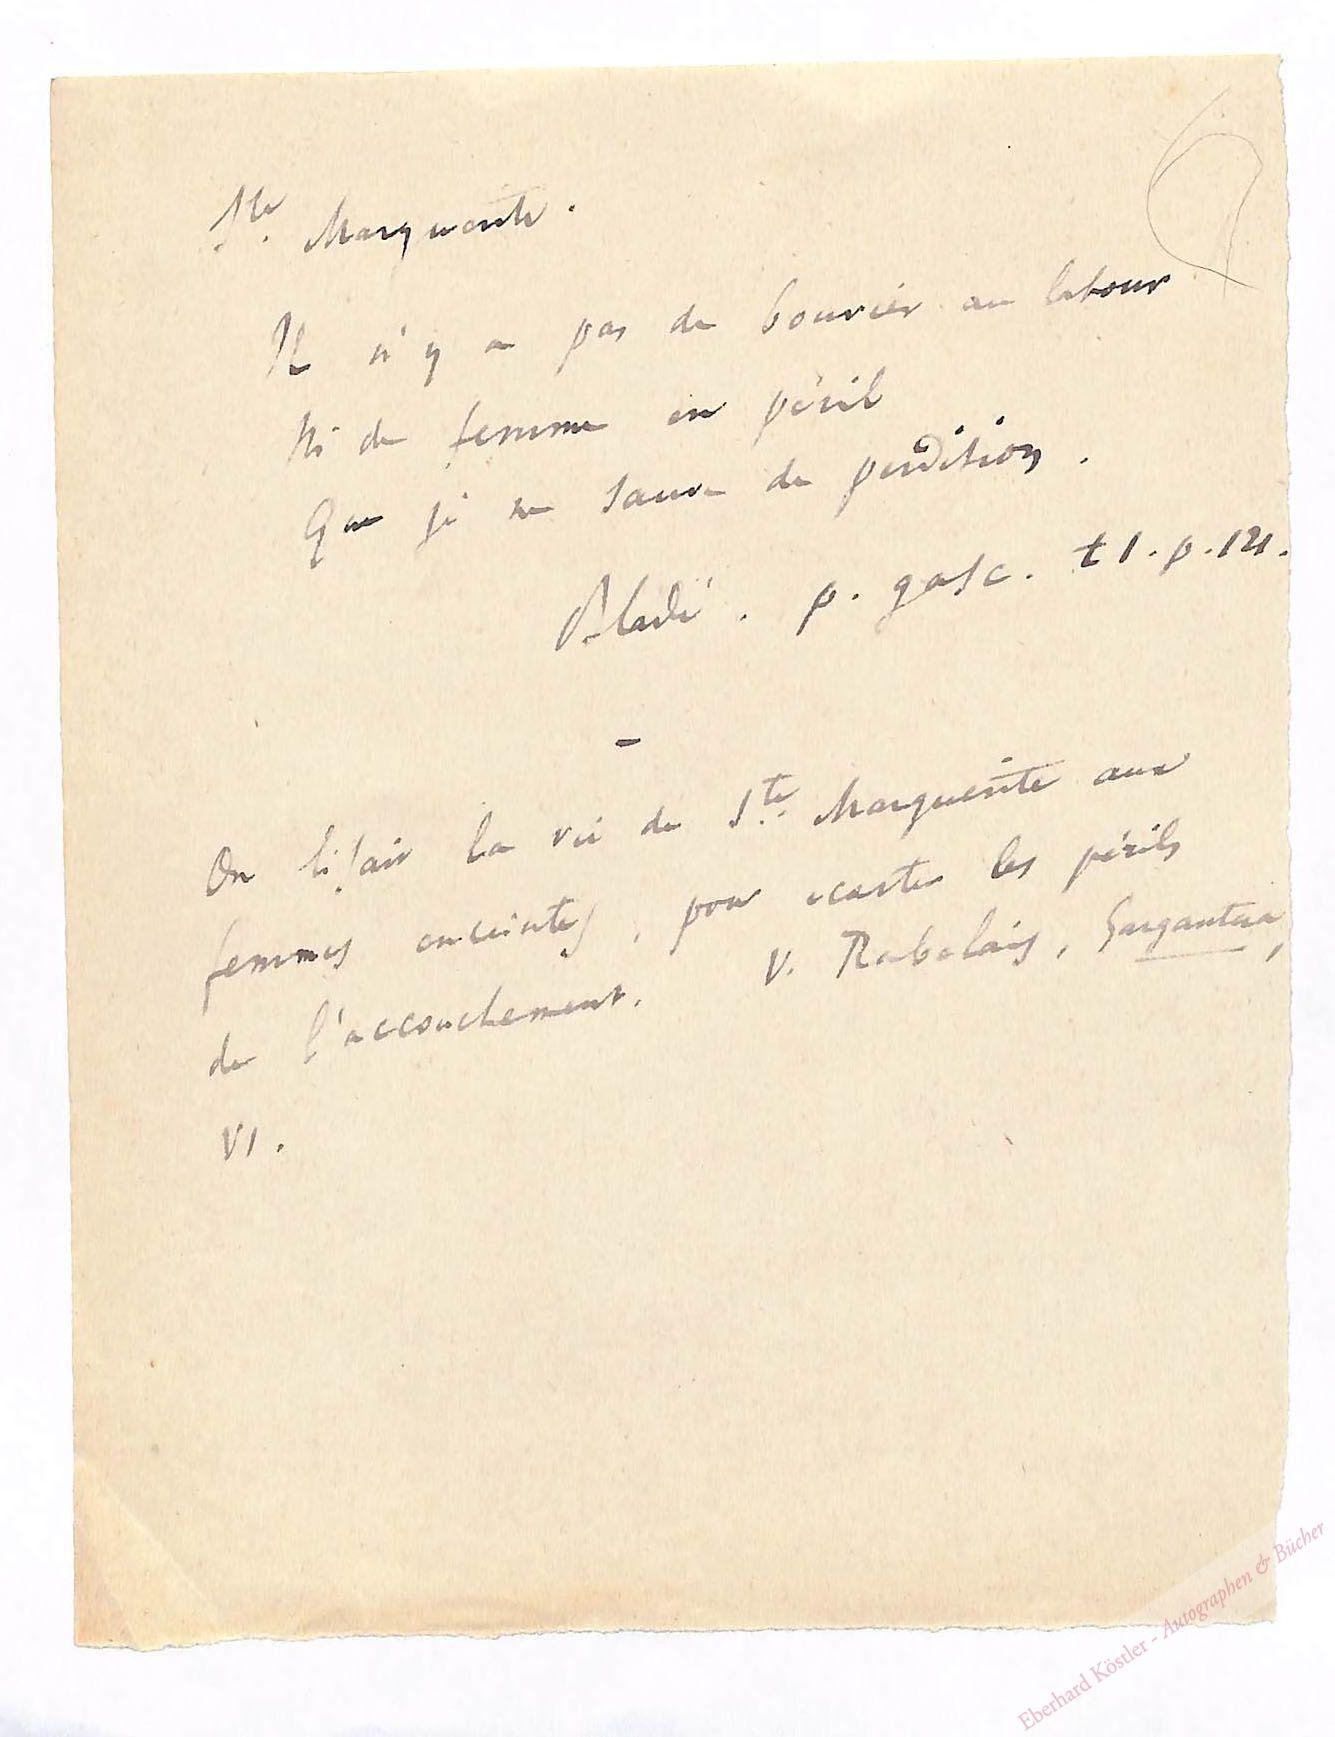 Ste. Marguerite.
Il n'y a pas de bouvier au labour
Ni de femme en péril
Que je ne sauve de perdition.
Bladé. p. gasc. t 1. p. 121.
—
On lisait la vie de Ste. Marguerite aux
femmes enceintes, pour écarter les périls
de l'accouchement. V. Rabelais, Gargantua,
VI.
Eberhard Köstler - Autographen & Bücher